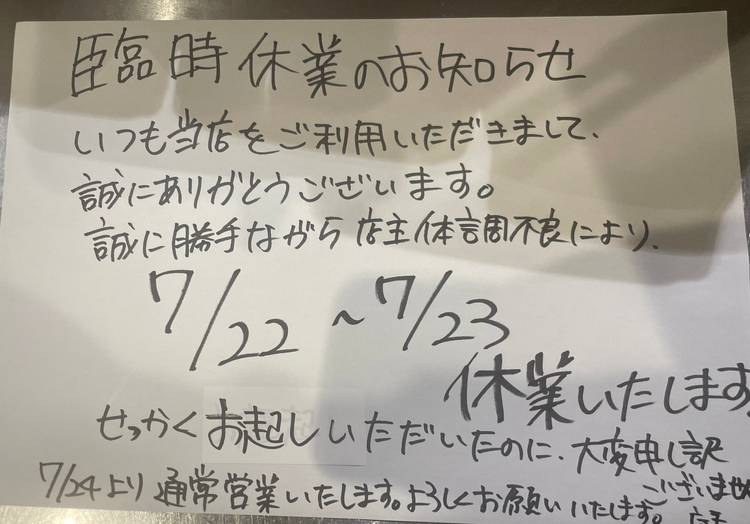 臨時休業のお知らせ
いつも当店をご利用いただきまして、
誠にありがとうございます。
誠に勝手ながら店主体調不良により、
7/22 ~ 7/23
休業いたします
せっかくお起しいただいたのに、大変申し訳
ございません
7/24より通常営業いたします。よろしくお願いいたします。